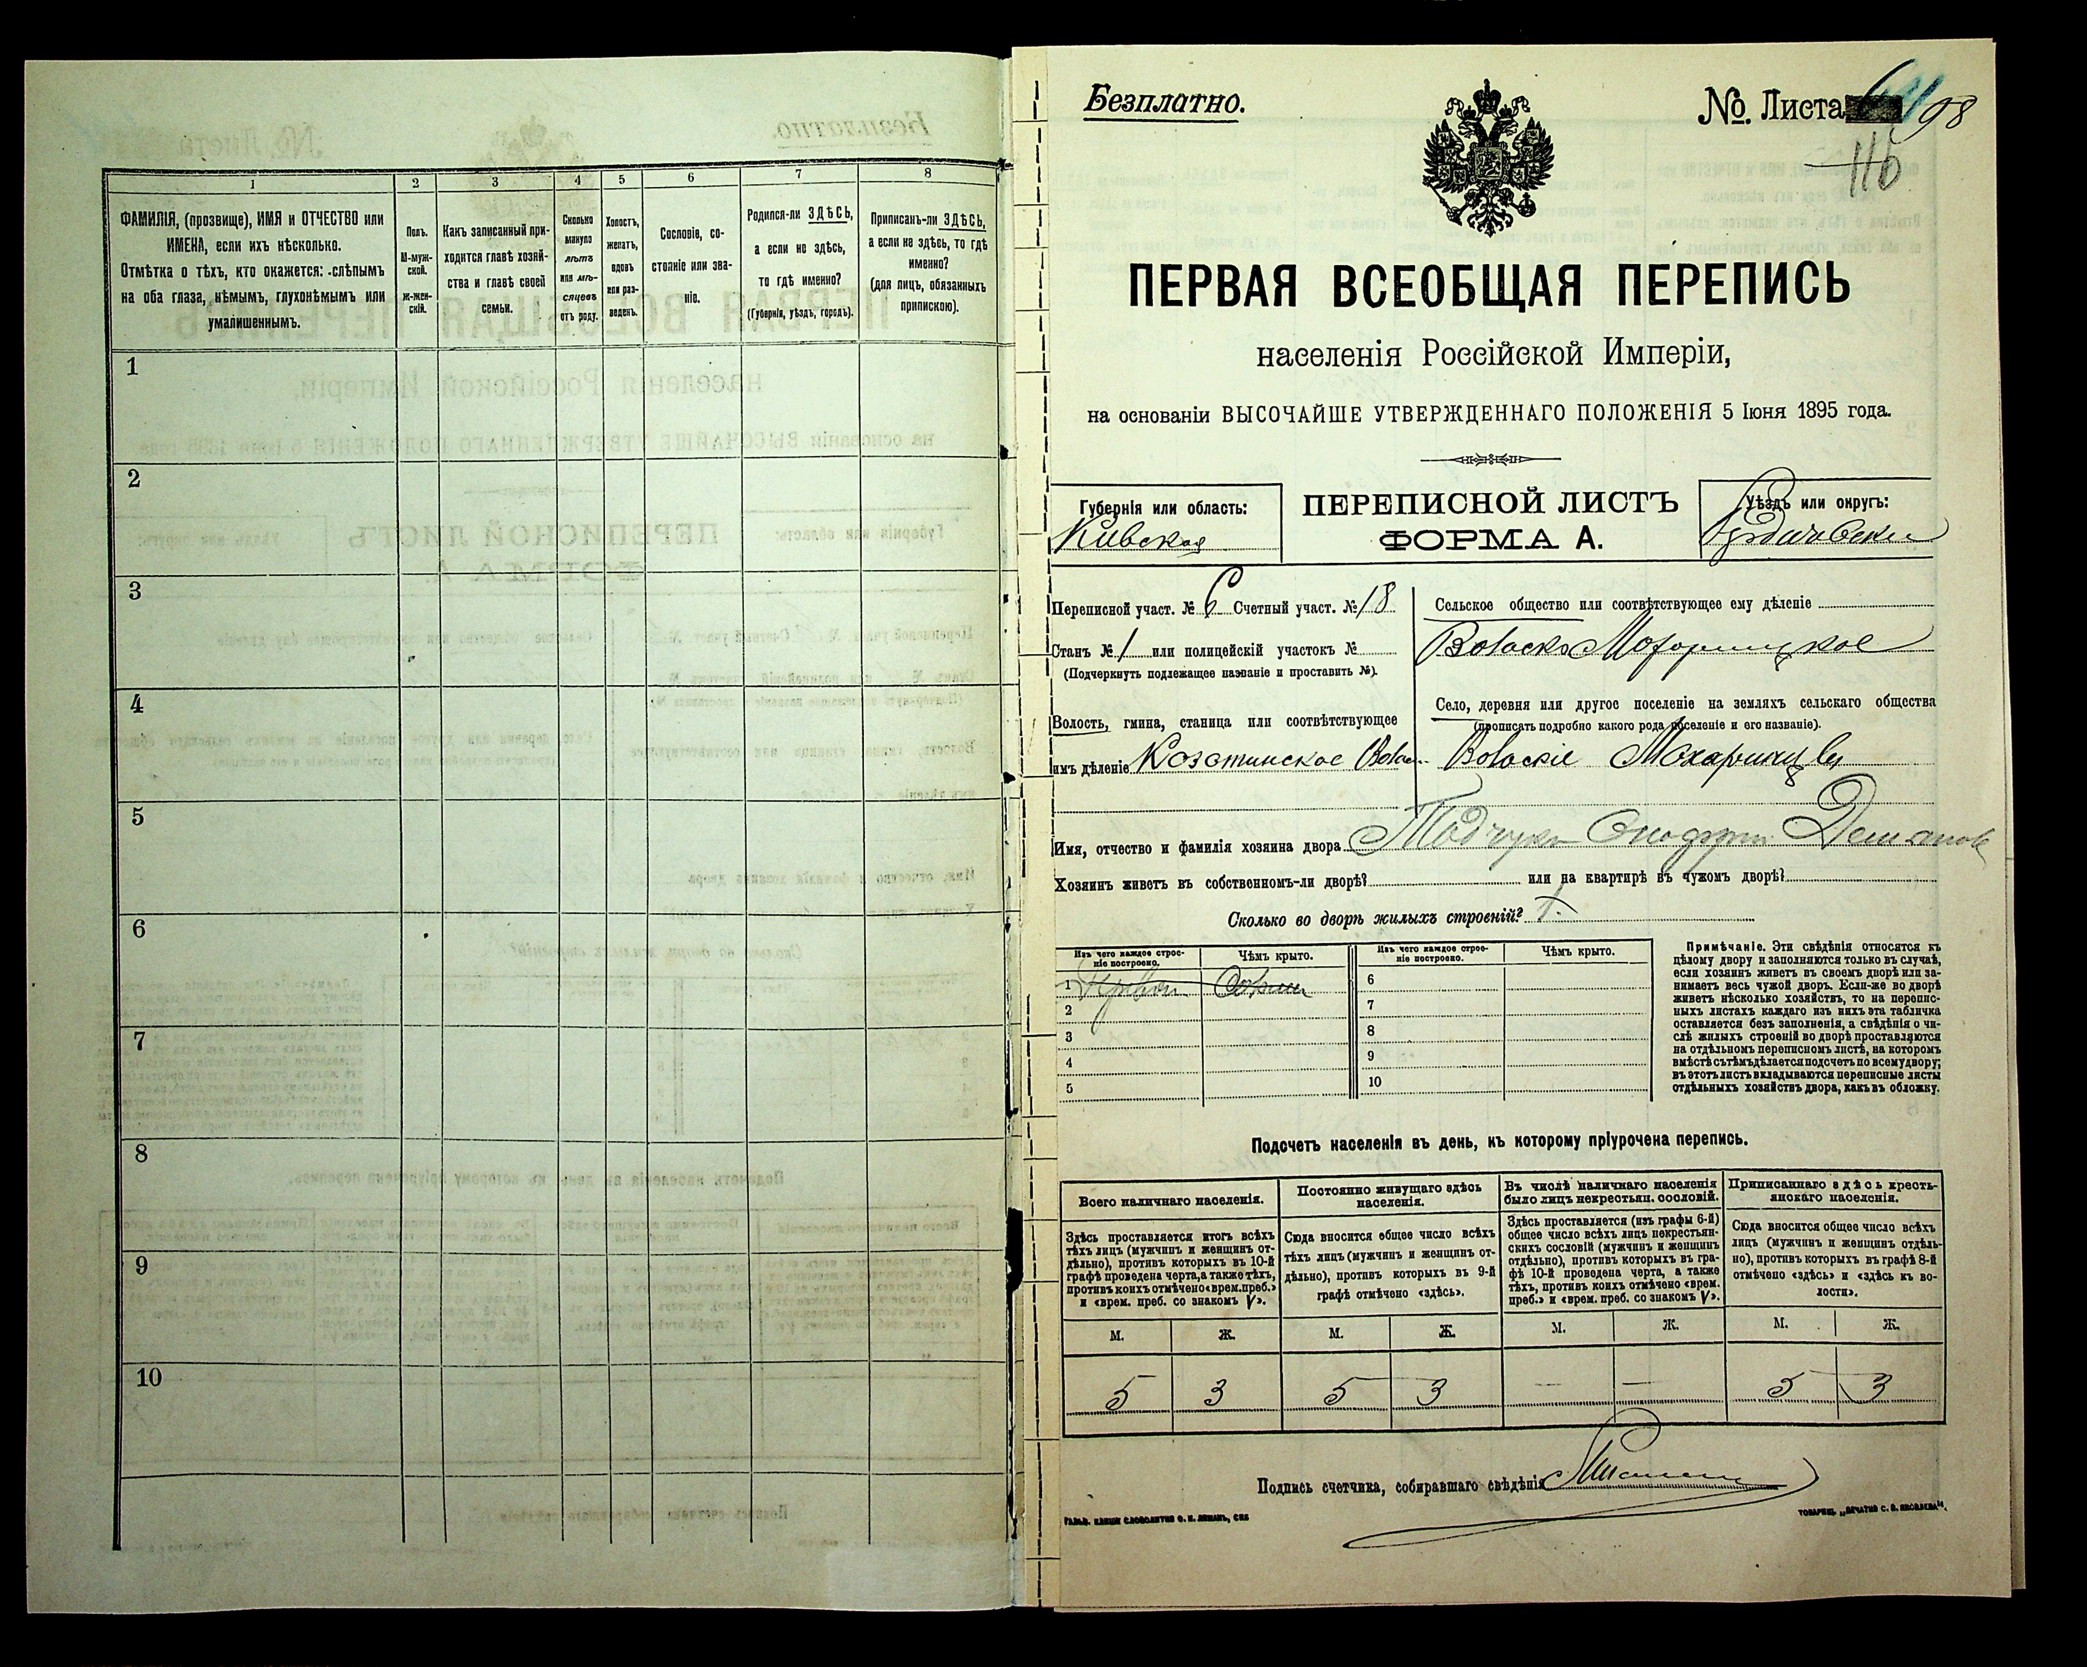 1
2
3
4
5
6
7
8
ФАМИЛІЯ, (прозвище), ИМЯ и ОТЧЕСТВО или
ИМЕНА, если ихъ нѣсколько.
Отмѣтка о тѣхъ, кто окажется: слѣпымъ
на оба глаза, нѣмымъ, глухонѣмымъ или
умалишеннымъ.
Полъ.
М-муж-
ской.
ж-жен-
скій.
Какъ записанный при-
ходится главѣ хозяй-
ства и главѣ своей
семьи.
Сколько
минуло
лѣтъ
или мѣ-
сяцевъ
отъ роду.
Холостъ,
женатъ,
вдовъ
или раз-
веденъ.
Сословіе, со-
стояніе или зва-
ніе.
Родился-ли ЗДѢСЬ,
а если не здѣсь,
то гдѣ именно?
(Губернія, уѣздъ, городъ).
Приписанъ-ли ЗДѢСЬ,
а если не здѣсь, то гдѣ
именно?
(для лицъ, обязанныхъ
припискою).
1
2
3
4
5
6
7
8
9
10
Безплатно.
№. Листа 98
116
ПЕРВАЯ ВСЕОБЩАЯ ПЕРЕПИСЬ
населенія Россійской Имперіи,
на основаніи ВЫСОЧАЙШЕ УТВЕРЖДЕННАГО ПОЛОЖЕНІЯ 5 Іюня 1895 года.
Губернія или область:
Кіевская
ПЕРЕПИСНОЙ ЛИСТЪ
ФОРМА А.
Уѣздъ или округъ:
Бердичевскій
Переписной участ. № 6 Счетный участ. № 18
Станъ № 1 или полицейскій участокъ №
(Подчеркнуть подлежащее названіе и проставить №).
Волость, гмина, станица или соотвѣтствующее
имъ дѣленіе
Сельское общество или соотвѣтствующее ему дѣленіе
Село, деревня или другое поселеніе на земляхъ сельскаго общества
(прописать подробно какого рода поселеніе и его названіе).
Имя, отчество и фамилія хозяина двора
Хозяинъ живетъ въ собственномъ-ли дворѣ? или на квартирѣ въ чужомъ дворѣ?
Сколько во дворѣ жилыхъ строеній? 1.
Изъ чего каждое строе-
ніе построено.
Чѣмъ крыто.
Изъ чего каждое строе-
ніе построено.
Чѣмъ крыто.
1
2
3
4
5
6
7
8
9
10
Примѣчаніе. Эти свѣдѣнія относятся къ
цѣлому двору и заполняются только въ случаѣ,
если хозяинъ живетъ въ своемъ дворѣ или за-
нимаетъ весь чужой дворъ. Если-же во дворѣ
живетъ нѣсколько хозяйствъ, то на перепис-
ныхъ листахъ каждаго изъ нихъ эта табличка
оставляется безъ заполненія, а свѣдѣнія о чи-
слѣ жилыхъ строеній во дворѣ проставляются
на отдѣльномъ переписномъ листѣ, на которомъ
вмѣстѣ съ тѣмъ дѣлается подсчетъ по всему двору;
въ этотъ листъ вкладываются переписные листы
отдѣльныхъ хозяйствъ двора, какъ въ обложку.
Подсчетъ населенія въ день, къ которому пріурочена перепись.
Всего наличнаго населенія.
Здѣсь проставляется итогъ всѣхъ
тѣхъ лицъ (мужчинъ и женщинъ от-
дѣльно), противъ которыхъ въ 10-й
графѣ проведена черта, а также тѣхъ,
противъ коихъ отмѣчено «врем. преб.»
и «врем. преб. со знакомъ V».
Постоянно живущаго здѣсь
населенія.
Сюда вносится общее число всѣхъ
тѣхъ лицъ (мужчинъ и женщинъ от-
дѣльно), противъ которыхъ въ 9-й
графѣ отмѣчено «здѣсь».
Въ числѣ наличнаго населенія
было лицъ некрестьян. сословій.
Здѣсь проставляется (изъ графы 6-й)
общее число всѣхъ лицъ некрестьян-
скихъ сословій (мужчинъ и женщинъ
отдѣльно), противъ которыхъ въ гра-
фѣ 10-й проведена черта, а также
тѣхъ, противъ коихъ отмѣчено «врем.
преб.» и «врем. преб. со знакомъ V».
Приписаннаго здѣсь кресть-
янскаго населенія.
Сюда вносится общее число всѣхъ
лицъ (мужчинъ и женщинъ отдѣль-
но), противъ которыхъ въ графѣ 8-й
отмѣчено «здѣсь» и «здѣсь къ во-
лости».
М. Ж. М. Ж. М. Ж. М. Ж.
5 3 5 3 — — 5 3
Подпись счетчика, собиравшаго свѣдѣнія
ГАЛЬВ. КЛИШЕ СЛОВОЛИТНИ О. И. ЛЕМАНЪ, СПБ
ТОВАРИЩ. „ПЕЧАТНЯ С. П. ЯКОВЛЕВА“.